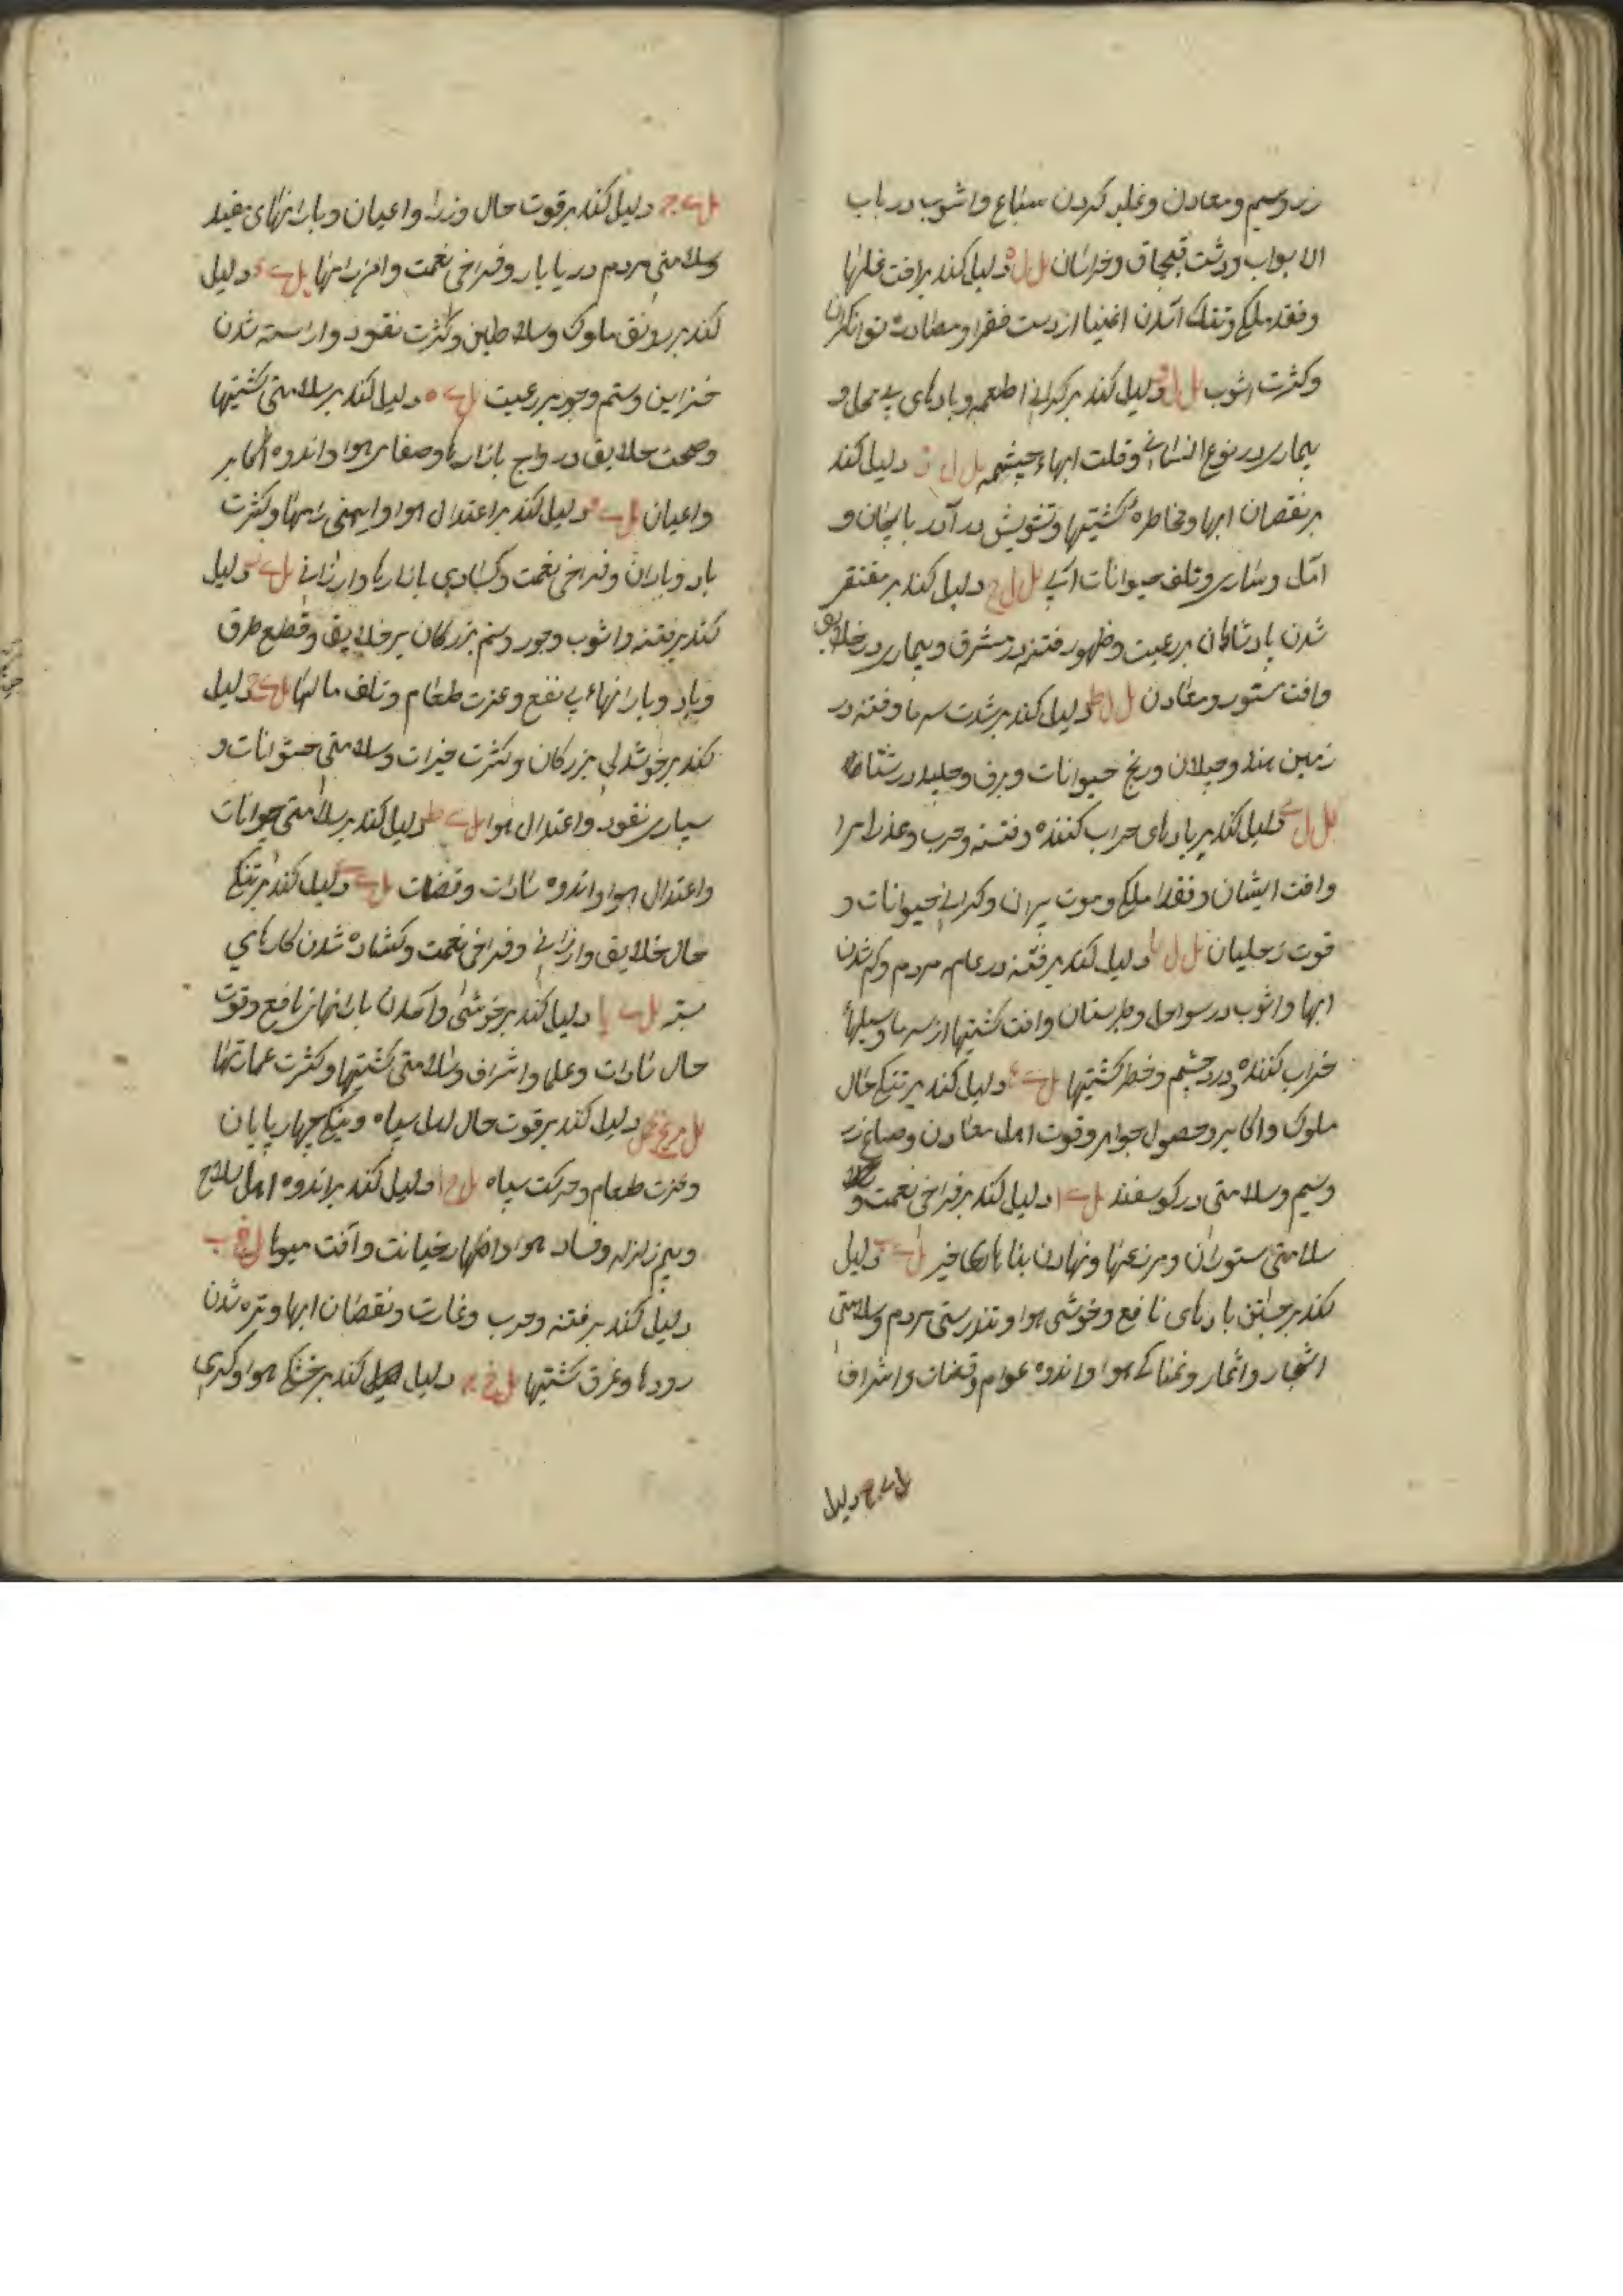 زر و سیم و معادن و غلبه کردن سباع و اشوب در باب
الابواب و دشت قبچاق و خراسان ل ل ه دلیل کند بر افت غلها
و فقد ملکی و تنک آمدن اغنیا از دست فقرا و مصادره توانکران
و کثرت اشوب ل ل و دلیل کند بر کرانی اطعمه و بادهای بی محل و
بیماری در نوع انسانی و قلت ابهاء چشمه ل ل ز دلیل کند
بر نقصان ابها و مخاطره کشتیها و تشویش در آذربایجان و
امل و ساری و تلف حیوانات ابی ل ل ح دلیل کند بر مفتقر
شدن پادشاهان بر رعیت و ظهور فتنه در مشرق و بیماری در خلایق
و افت ستور و معادن ل ل ط دلیل کند بر شدت سرما و فتنه در
زمین هند و جیلان و رنج حیوانات و برف و جلید در شتا
ل ل ی دلیل کند بر بادهای خراب کننده و فتنه و حرب و عذر امرا
و افت ایشان و فقد ملکی و موت پیران و کرانی حیوانات و
قوت زحلیان ل ل یا دلیل کند بر فتنه در عام مردم و کم شدن
ابها و اشوب در سواحل و طبرستان و افت کشتیها از سرما و سیلهاء
خراب کننده و درد چشم و خطر کشتیها ل ی دلیل کند بر نیکی حال
ملوک و اکابر و حصول جواهر و قوت اهل معادن و صباغ زر
و سیم و سلامتی در کوسفند ل ی ا دلیل کند بر فراخی نعمت و
سلامتی ستوران و مزرعها و نهادن بناهای خیر ل ی ب دلیل
کند بر جستن بادهای نافع و خوشی هوا و تندرستی مردم و سلامتی
اشجار و اثمار و نمناکی هوا و اندوه عوام و قضات و اشراف
ل ی ج دلیل
ل ی ج دلیل کند بر قوت حال وزرا و اعیان و بارانهای مفید
و سلامتی مردم دریابار و فراخی نعمت و امن راهها ل ی د دلیل
کند بر رونق ملوک و سلاطین و کثرت نقود و اراسته شدن
خزاین و ستم و جور بر رعیت ل ی ه دلیل کند بر سلامتی کشتیها
و صحت خلایق و رواج بازارها و صفای هوا و اندوه اکابر
و اعیان ل ی و دلیل کند بر اعتدال هوا و ایمنی راهها و کثرت
باد و باران و فراخی نعمت و کسادی بازارها و ارزانی ل ی ز دلیل
کند بر فتنه و اشوب و جور و ستم بزرکان بر خلایق و قطع طرق
و باد و بارانهاء بی نفع و عزت طعام و تلف مالها ل ی ح دلیل
کند بر خوشدلی بزرکان و کثرت خیرات و سلامتی حیوانات و
بسیاری نقود و اعتدال هوا ل ی ط دلیل کند بر سلامتی حیوانات
و اعتدال هوا و اندوه سادات و قضات ل ی ی دلیل کند بر نیکی
حال خلایق و ارزانی و فراخی نعمت و کشاده شدن کارهای
بسته ل ی یا دلیل کند بر خوشی و آمدن بارانهای نافع و قوت
حال سادات و علما و اشراف و سلامتی کشتیها و کثرت عمارتها
ل مریخ حمل دلیل کند بر قوت حال اهل سپاه و نیکی چهارپایان
و عزت طعام و حرکت سپاه ل خ ا دلیل کند بر اندوه اهل سلاح
و بیم زلزله و فساد هوا و اظهار خیانت و آفت میوها ل خ ب
دلیل کند بر فتنه و حرب و غارت و نقصان ابها و تیره شدن
رودها و غرق کشتیها ل خ ج دلیل کند بر خشکی هوا و کرمی